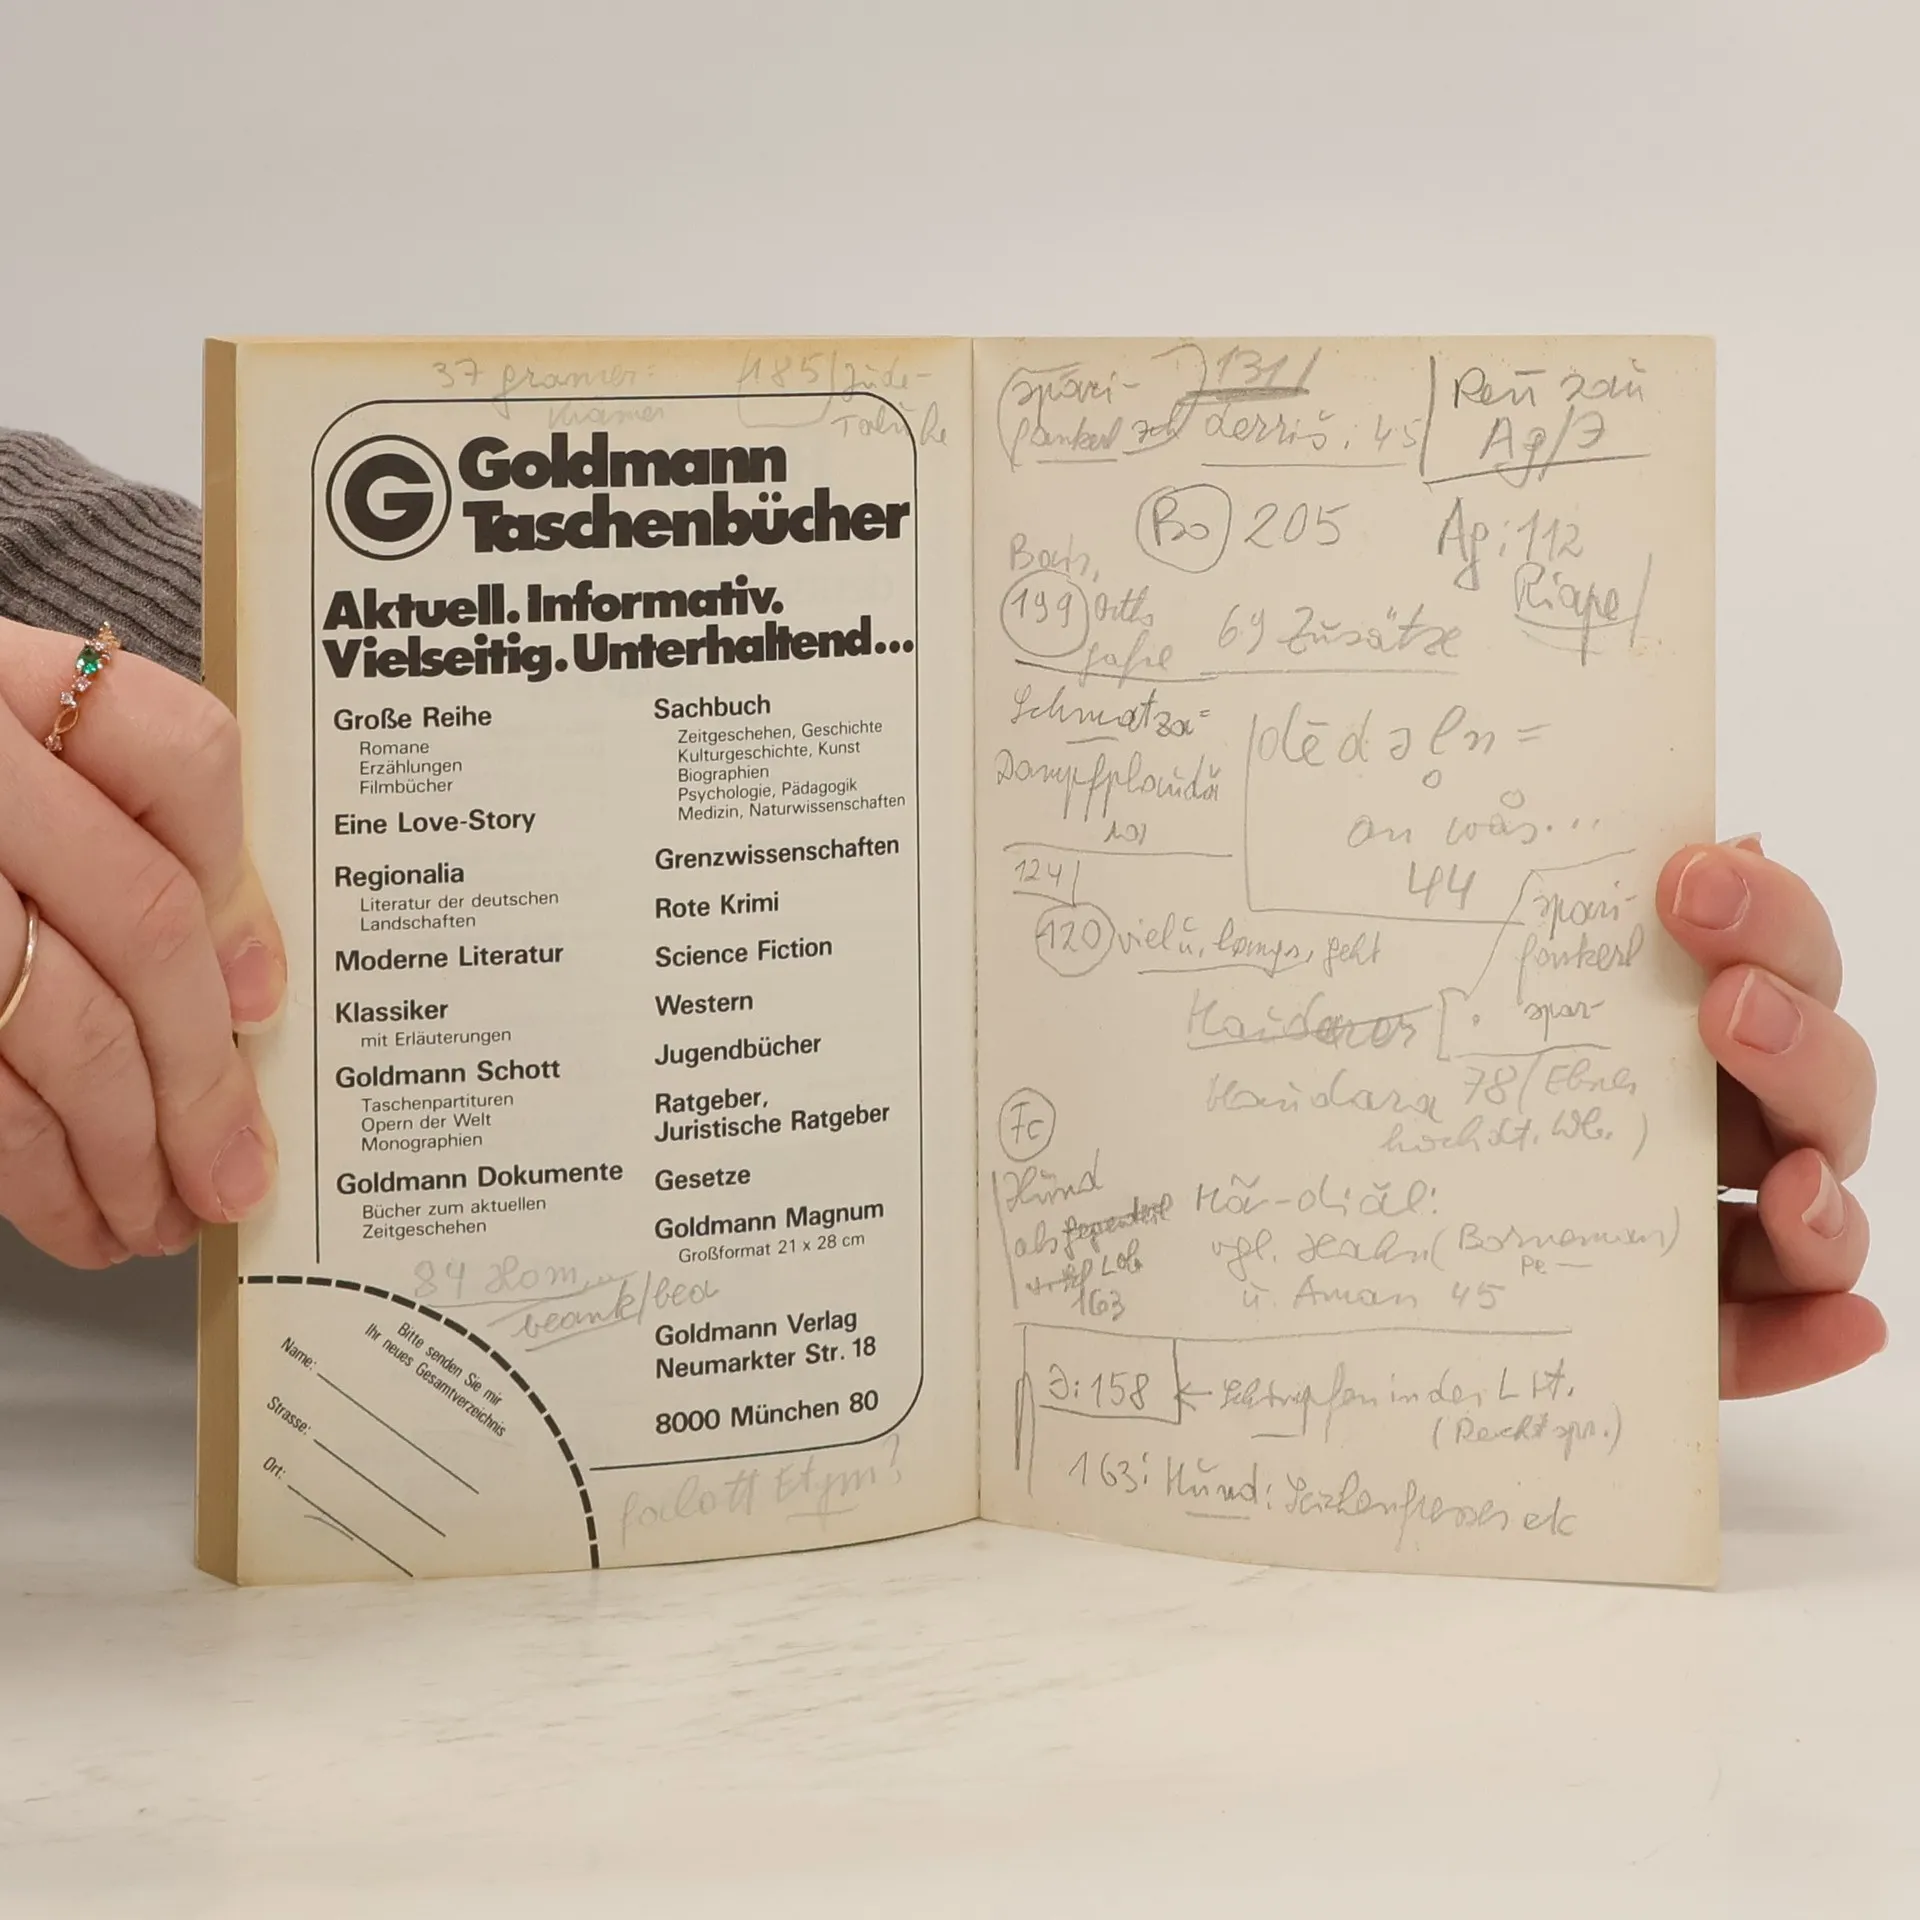 37 gramer:
Kramer
185
Goldmann
Taschenbücher
Aktuell. Informativ.
Vielseitig. Unterhaltend...
Große Reihe
Romane
Erzählungen
Filmbücher
Eine Love-Story
Regionalia
Literatur der deutschen
Landschaften
Moderne Literatur
Klassiker
mit Erläuterungen
Goldmann Schott
Taschenpartituren
Opern der Welt
Monographien
Goldmann Dokumente
Bücher zum aktuellen
Zeitgeschehen
Sachbuch
Zeitgeschehen, Geschichte
Kulturgeschichte, Kunst
Biographien
Psychologie, Pädagogik
Medizin, Naturwissenschaften
Grenzwissenschaften
Rote Krimi
Science Fiction
Western
Jugendbücher
Ratgeber,
Juristische Ratgeber
Gesetze
Goldmann Magnum
Großformat 21 x 28 cm
Goldmann Verlag
Neumarkter Str. 18
8000 München 80
84
Bitte senden Sie mir
Ihr neues Gesamtverzeichnis
Name:
Strasse:
Ort:
Etym?
131
spari-
fankerl
45
Ag/J
Bo 205
Ag: 112
199
69 Zusätze
Schmatza=
44
124
120 viel u. langs. geht
spari-
fankerl
spar-
Haudara 78 (Ebner
Hund
als
Lob
163
vgl. Hahn (Bornemann)
Pe
u. Aman 45
J: 158
in der Lit.
163: Hund: Leichenfresser etc